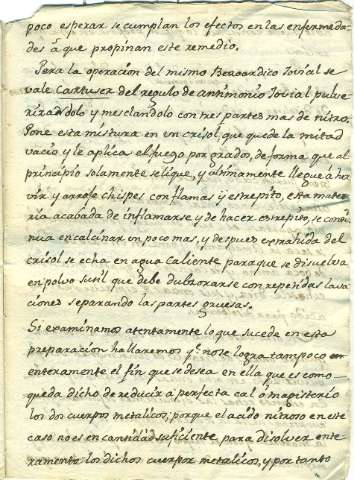 poco esperar se cumplan los efectos en las enfermeda-
des à que propinan este remedio.
Pera la operacion del mismo Bezoardico Iovial se
vale Cartuser del regulo de antimonio Iovial pulve-
rizandolo y mesclandolo con tres partes mas de nitro.
Pone esta mistura en un crisol que quede la mitad
vacio y le aplica el fuego por grados, de forma que al
principio solamente se lique, y ultimamente llegue à her
vir, y arroje chispes con flamas y estrepito, esta mate-
ria acabada de inflamarse y de hacer estrepito, se conti-
nua en calcinar un poco mas, y despues extrahida del
crisol se echa en agua caliente para que se disuelva
en polvo sutil que debe dulzorarse con repetidas lava-
ciones separando las partes gruesas.
Si examinamos atentamente lo que sucede en esta
preparacion hallaremos q.e no se logra tampoco en-
enteramente el fin que se desea en ella que es como
queda dicho de reducir a perfecta cal ò magisterio
los dos cuerpos metalicos, porque el acido nitroso en este
caso no es en cantidad suficiente para disolver ente
ramente los dichos cuerpos metalicos, y por tanto